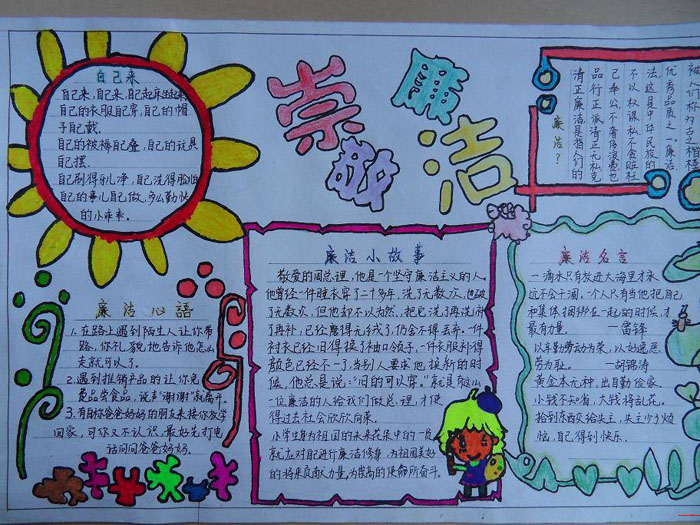 自己来
自己来,自己来,自己起床坐起来
自己的衣服自己穿,自己的帽
子自己戴.
自己的被褥自己叠,自己的玩具
自己摆.
自己刷得牙儿净,自己洗得脸
自己的事儿自己做,多么勤快
的小乖乖。
崇敬
廉洁
廉洁?
清正廉洁是指人们的
品行正派清正无私克
己奉公不奢侈浪费也
不以权谋私不贪赃枉
法这是中华民族的
优秀品质之一廉洁
廉洁心語
1.在路上遇到陌生人让你带
路,你礼貌地告诉他怎么
走就可以了。
2.遇到推销产品的让你免
费品尝食品,说声“谢谢”就离开。
3.有自称爸爸妈妈的朋友来接你放学
回家,可你又不认识,最好先打电
话问问爸爸妈妈.
廉洁小故事
敬爱的周总理,他是个坚守廉洁主义的人。
他曾经一件睡衣穿了二十多年,洗了无数次,也破
了无数次,但他却不以为然、把它洗了再洗,补
了再补,已经磨得无绒了,仍舍不得丢弃.一件
衬衣已经旧得换了袖口领子,一件衣服补得
颜色已经不一了,当别人要求他换新的时
候,他总是说:“旧的可以穿。”就是
一位廉洁的人给我们做总理,才使
得过去社会欣欣向荣。
小学生身为祖国的未来花朵中的一员
就应对自己进行廉洁修养,为祖国美好
的将来贡献力量,为崇高的使命所奋斗。
廉洁名言
一滴水只有放进大海里才永
远不会干涸,个人只有当他把自己
和集体捆绑在一起的时候,才
最有力量。——雷锋
以辛勤劳动为荣,以好逸恶
劳为耻。——胡锦涛
黄金本无种,出自勤俭家。
小钱不知省,大钱将乱花。
拾到东西交给失主,失主少了烦
恼,自己得到快乐。